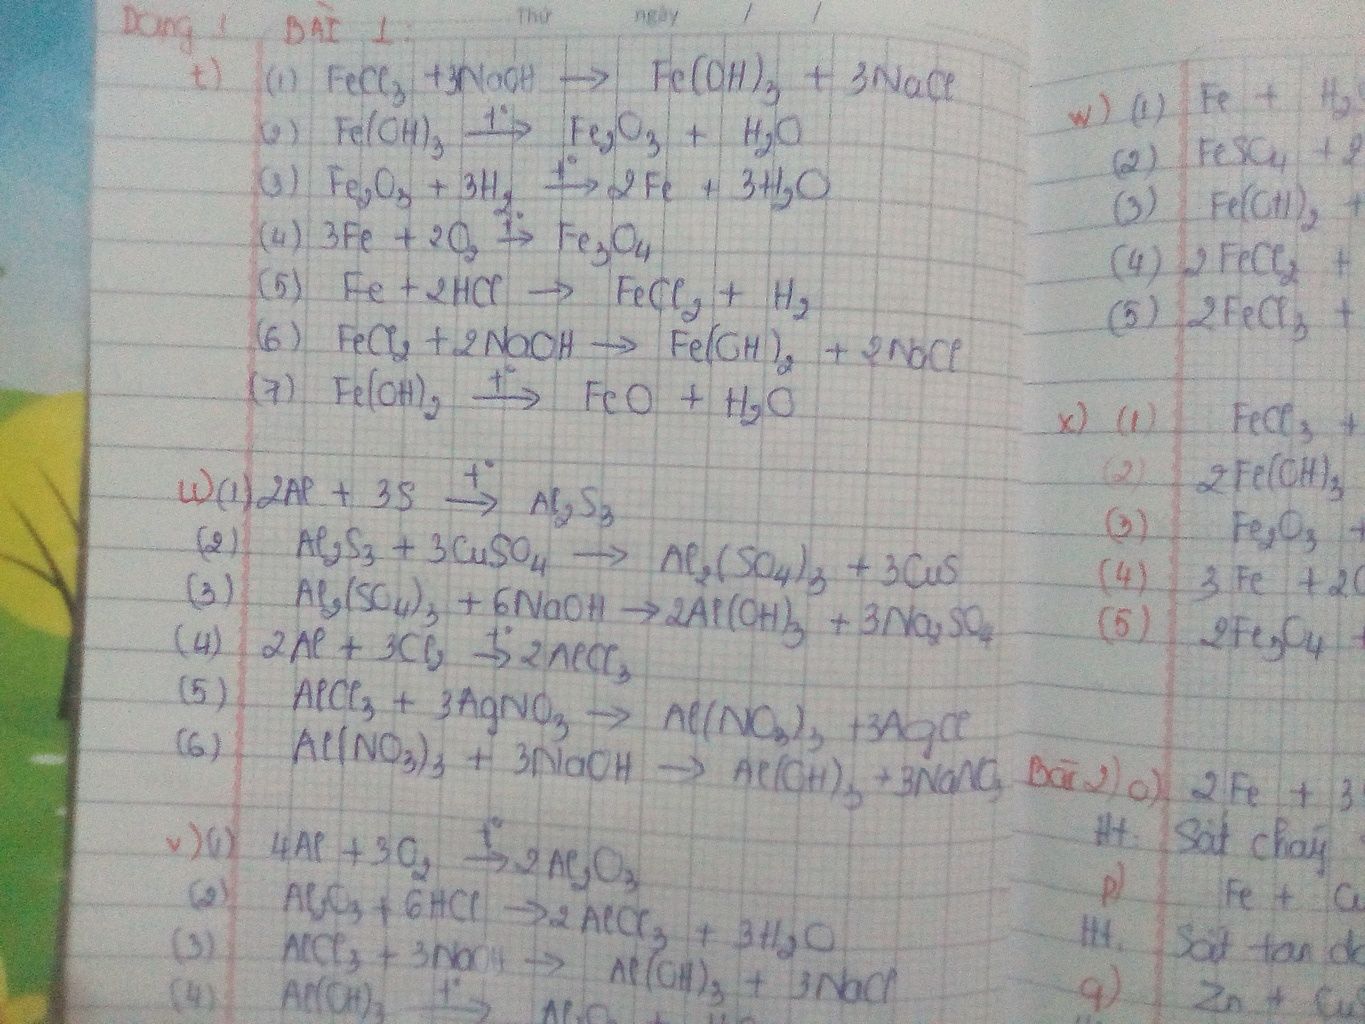 Dạng 1 BÀI 1: Thứ ngày / /
t) (1) FeCl₃ + 3NaOH → Fe(OH)₃ + 3NaCl
(2) Fe(OH)₃ t°→ Fe₂O₃ + H₂O
(3) Fe₂O₃ + 3H₂ t°→ 2Fe + 3H₂O
(4) 3Fe + 2O₂ t°→ Fe₃O₄
(5) Fe + 2HCl → FeCl₂ + H₂
(6) FeCl₂ + 2NaOH → Fe(OH)₂ + 2NaCl
(7) Fe(OH)₂ t°→ FeO + H₂O
u) (1) 2Al + 3S t°→ Al₂S₃
(2) Al₂S₃ + 3CuSO₄ → Al₂(SO₄)₃ + 3CuS
(3) Al₂(SO₄)₃ + 6NaOH → 2Al(OH)₃ + 3Na₂SO₄
(4) 2Al + 3Cl₂ t°→ 2AlCl₃
(5) AlCl₃ + 3AgNO₃ → Al(NO₃)₃ + 3AgCl
(6) Al(NO₃)₃ + 3NaOH → Al(OH)₃ + 3NaNO₃
v) (1) 4Al + 3O₂ t°→ 2Al₂O₃
(2) Al₂O₃ + 6HCl → 2AlCl₃ + 3H₂O
(3) AlCl₃ + 3NaOH → Al(OH)₃ + 3NaCl
(4) Al(OH)₃ t°→ Al₂O₃ + H₂O
w) (1) Fe + H₂
(2) FeSO₄ + 2
(3) Fe(OH)₂ +
(4) 2FeCl₂ +
(5) 2FeCl₃ +
x) (1) FeCl₃ +
(2) 2Fe(OH)₃
(3) Fe₂O₃ +
(4) 3Fe + 2O
(5) 2Fe₃O₄ +
Bài 2) o) 2Fe + 3
Ht: Sắt cháy
p) Fe + Cu
Ht. Sắt tan
q) Zn + Cu